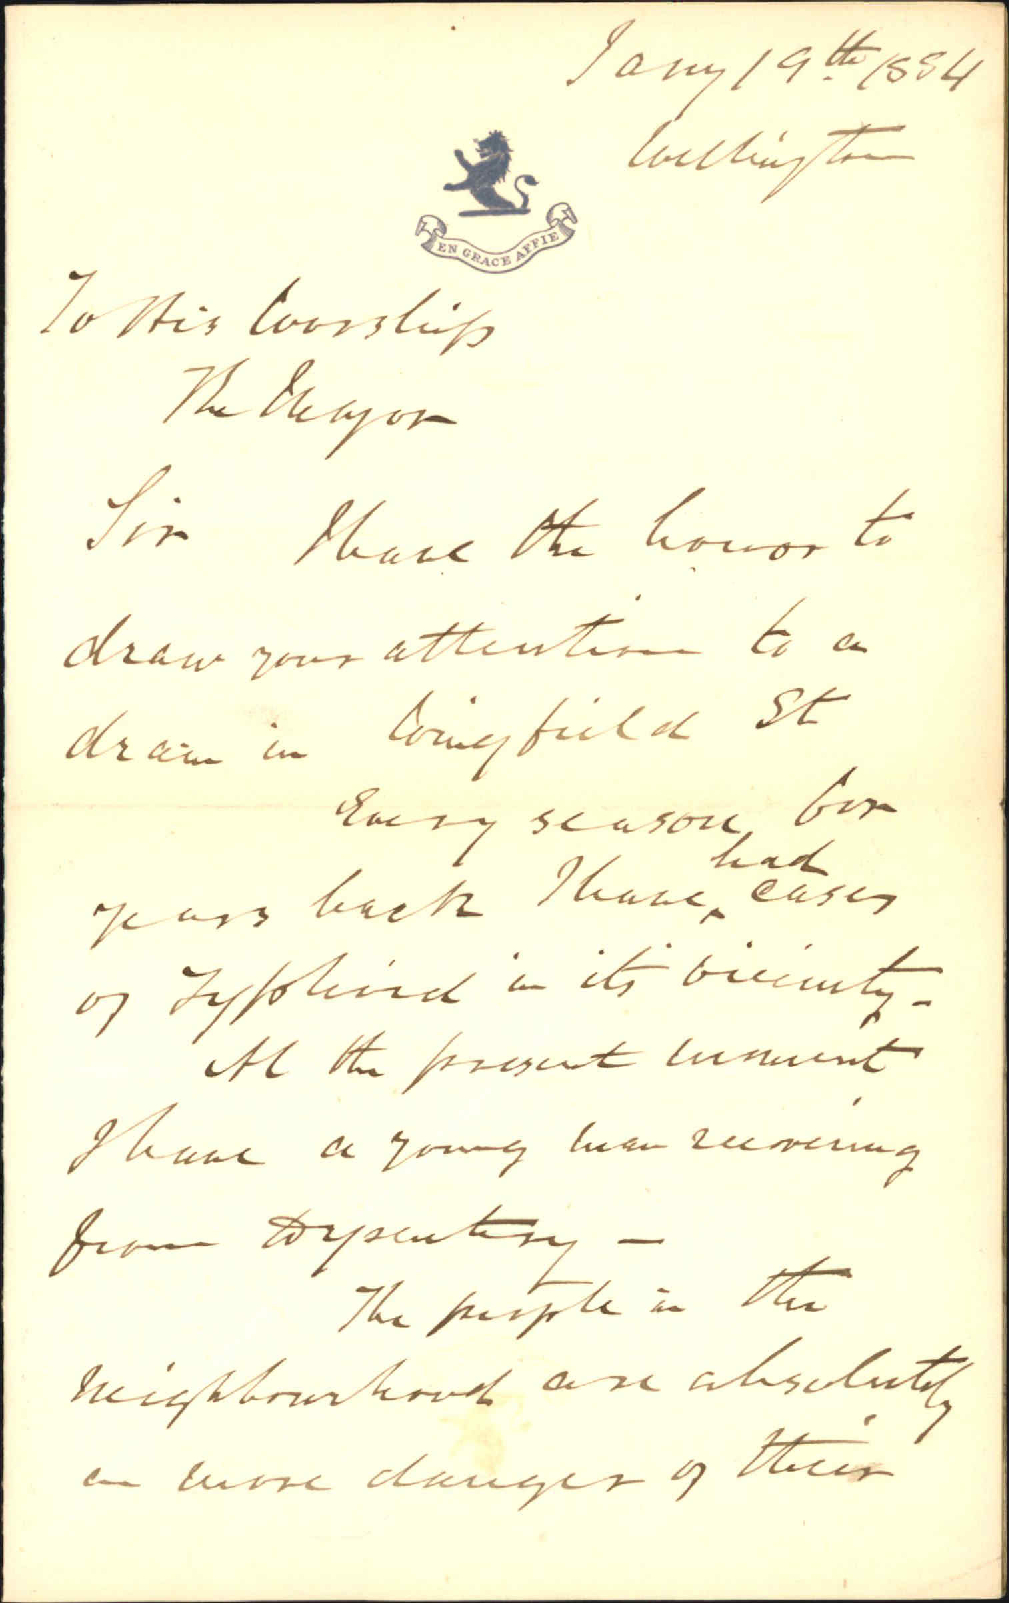 Jany 19th 1884
Wellington
EN GRACE AFFIE
To His Worship
The Mayor
Sir I have the honor to
draw your attention to a
drain in Wingfield St
Every season for
years back I have had cases
of Typhoid in its vicinity -
At the present moment
I have a young man recovering
from Dysentery -
The people in the
neighbourhood are absolutely
in more danger of their